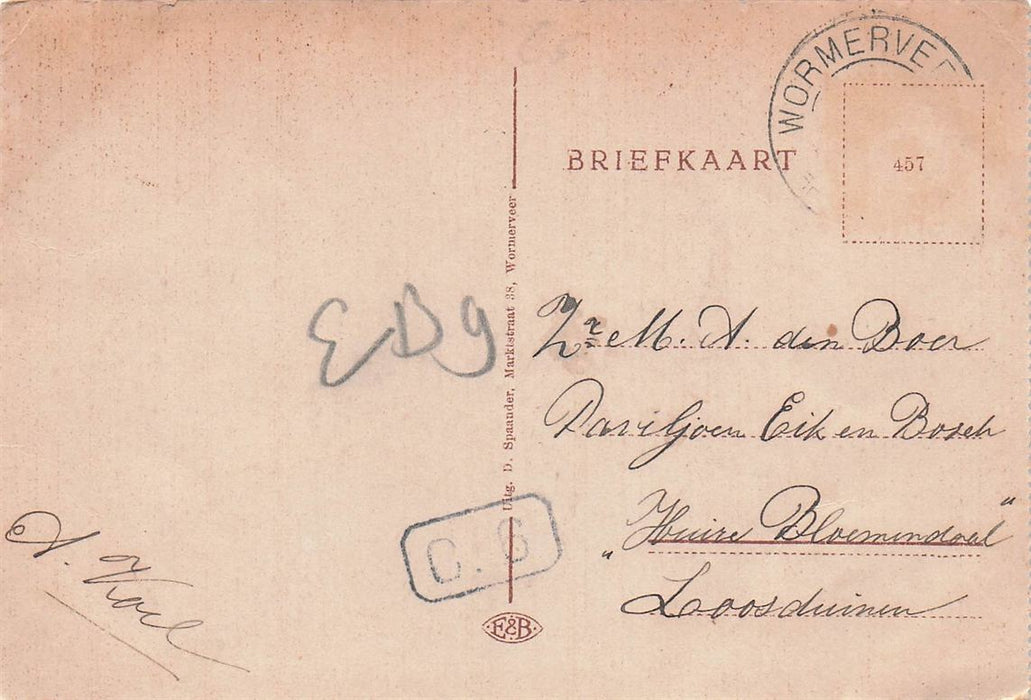 WORMERVEE
BRIEFKAART
457
Uitg. D. Spaander, Marktstraat 38, Wormerveer
EB9
Zr M. A. den Boer
Paviljoen Eik en Bosch
"Huize Bloemendaal"
Loosduinen
C. 6
E&B
A.